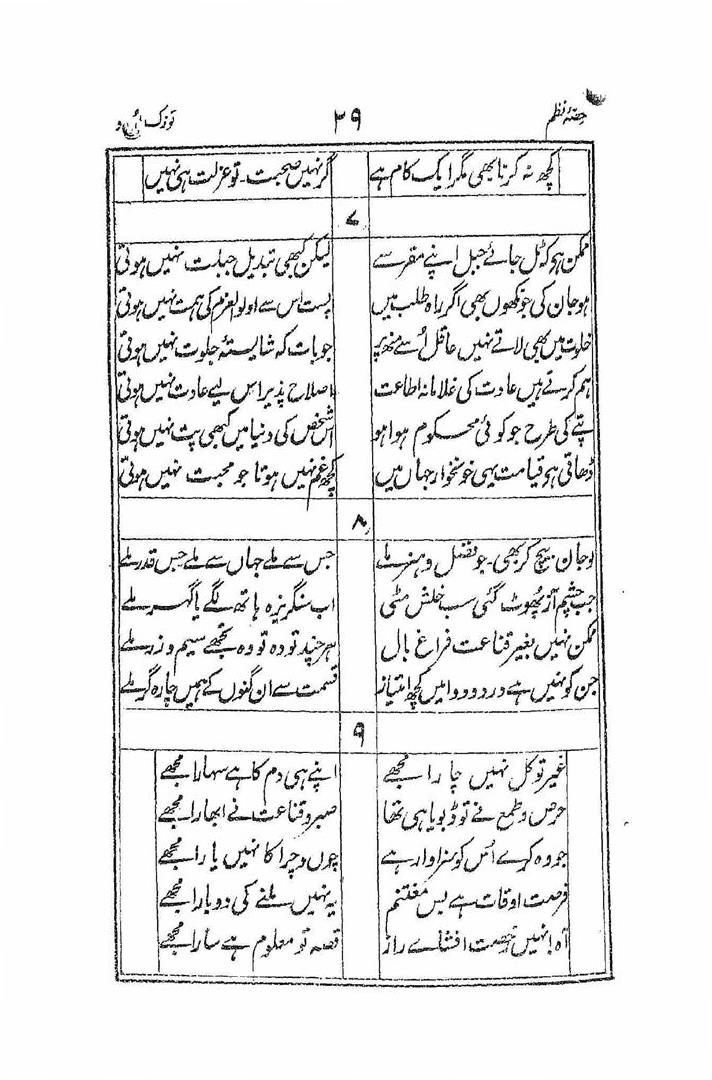 حصۂ نظم ۲۹ توزک اُردو
کچھ نہ کرنا بھی مگر ایک کام ہے گر نہیں صحبت ۔ تو عزلت ہی نہیں
۷
ممکن ہو کہ ٹل جائے جبل اپنے مقر سے لیکن کبھی تبدیل جبلت نہیں ہوتی
ہو جان کی جوکھوں بھی اگر راہ طلب میں پست اس سے اولو العزم کی ہمت نہیں ہوتی
خلوت میں بھی لاتے نہیں عاقل اُسے منھ پر جو بات کہ شایستۂ جلوت نہیں ہوتی
ہم کرتے ہیں عادت کی غلامانہ اطاعت اصلاح پذیر اس لیے عادت نہیں ہوتی
پتے کی طرح جو کوئی محکوم ہوا ہو اس شخص کی دنیا میں کبھی پت نہیں ہوتی
ڈھاتی ہو قیامت یہی خونخوار جہاں میں کچھ غم نہیں ہوتا جو محبت نہیں ہوتی
۸
لو جان بیچ کر بھی ۔ جو فضل و ہنر ملے جس سے ملے جہاں سے ملے جس قدر ملے
جب چشم آز پھوٹ گئی سب خلش مٹی اب سنگریزہ ہاتھ لگے یا گہر ملے
ممکن نہیں بغیر قناعت فراغ بال ہر چند تودہ تودہ تجھے سیم و زر ملے
جن کو نہیں ہے درد و دوا میں کچھ امتیاز قسمت سے ان گنوں کے ہمیں چارہ گر ملے
۹
غیر توکل نہیں چارا مجھے اپنے ہی دم کا ہے سہارا مجھے
حرص و طمع نے تو ڈبویا ہی تھا صبر و قناعت نے ابھارا مجھے
جو وہ کرے اُس کو سزاوار ہے چوں و چرا کا نہیں یارا مجھے
فرصت اوقات ہے بس مغتنم یہ نہیں ملنے کی دوبارا مجھے
آہ انہیں رخصت افشاے راز قصہ تو معلوم ہے سارا مجھے